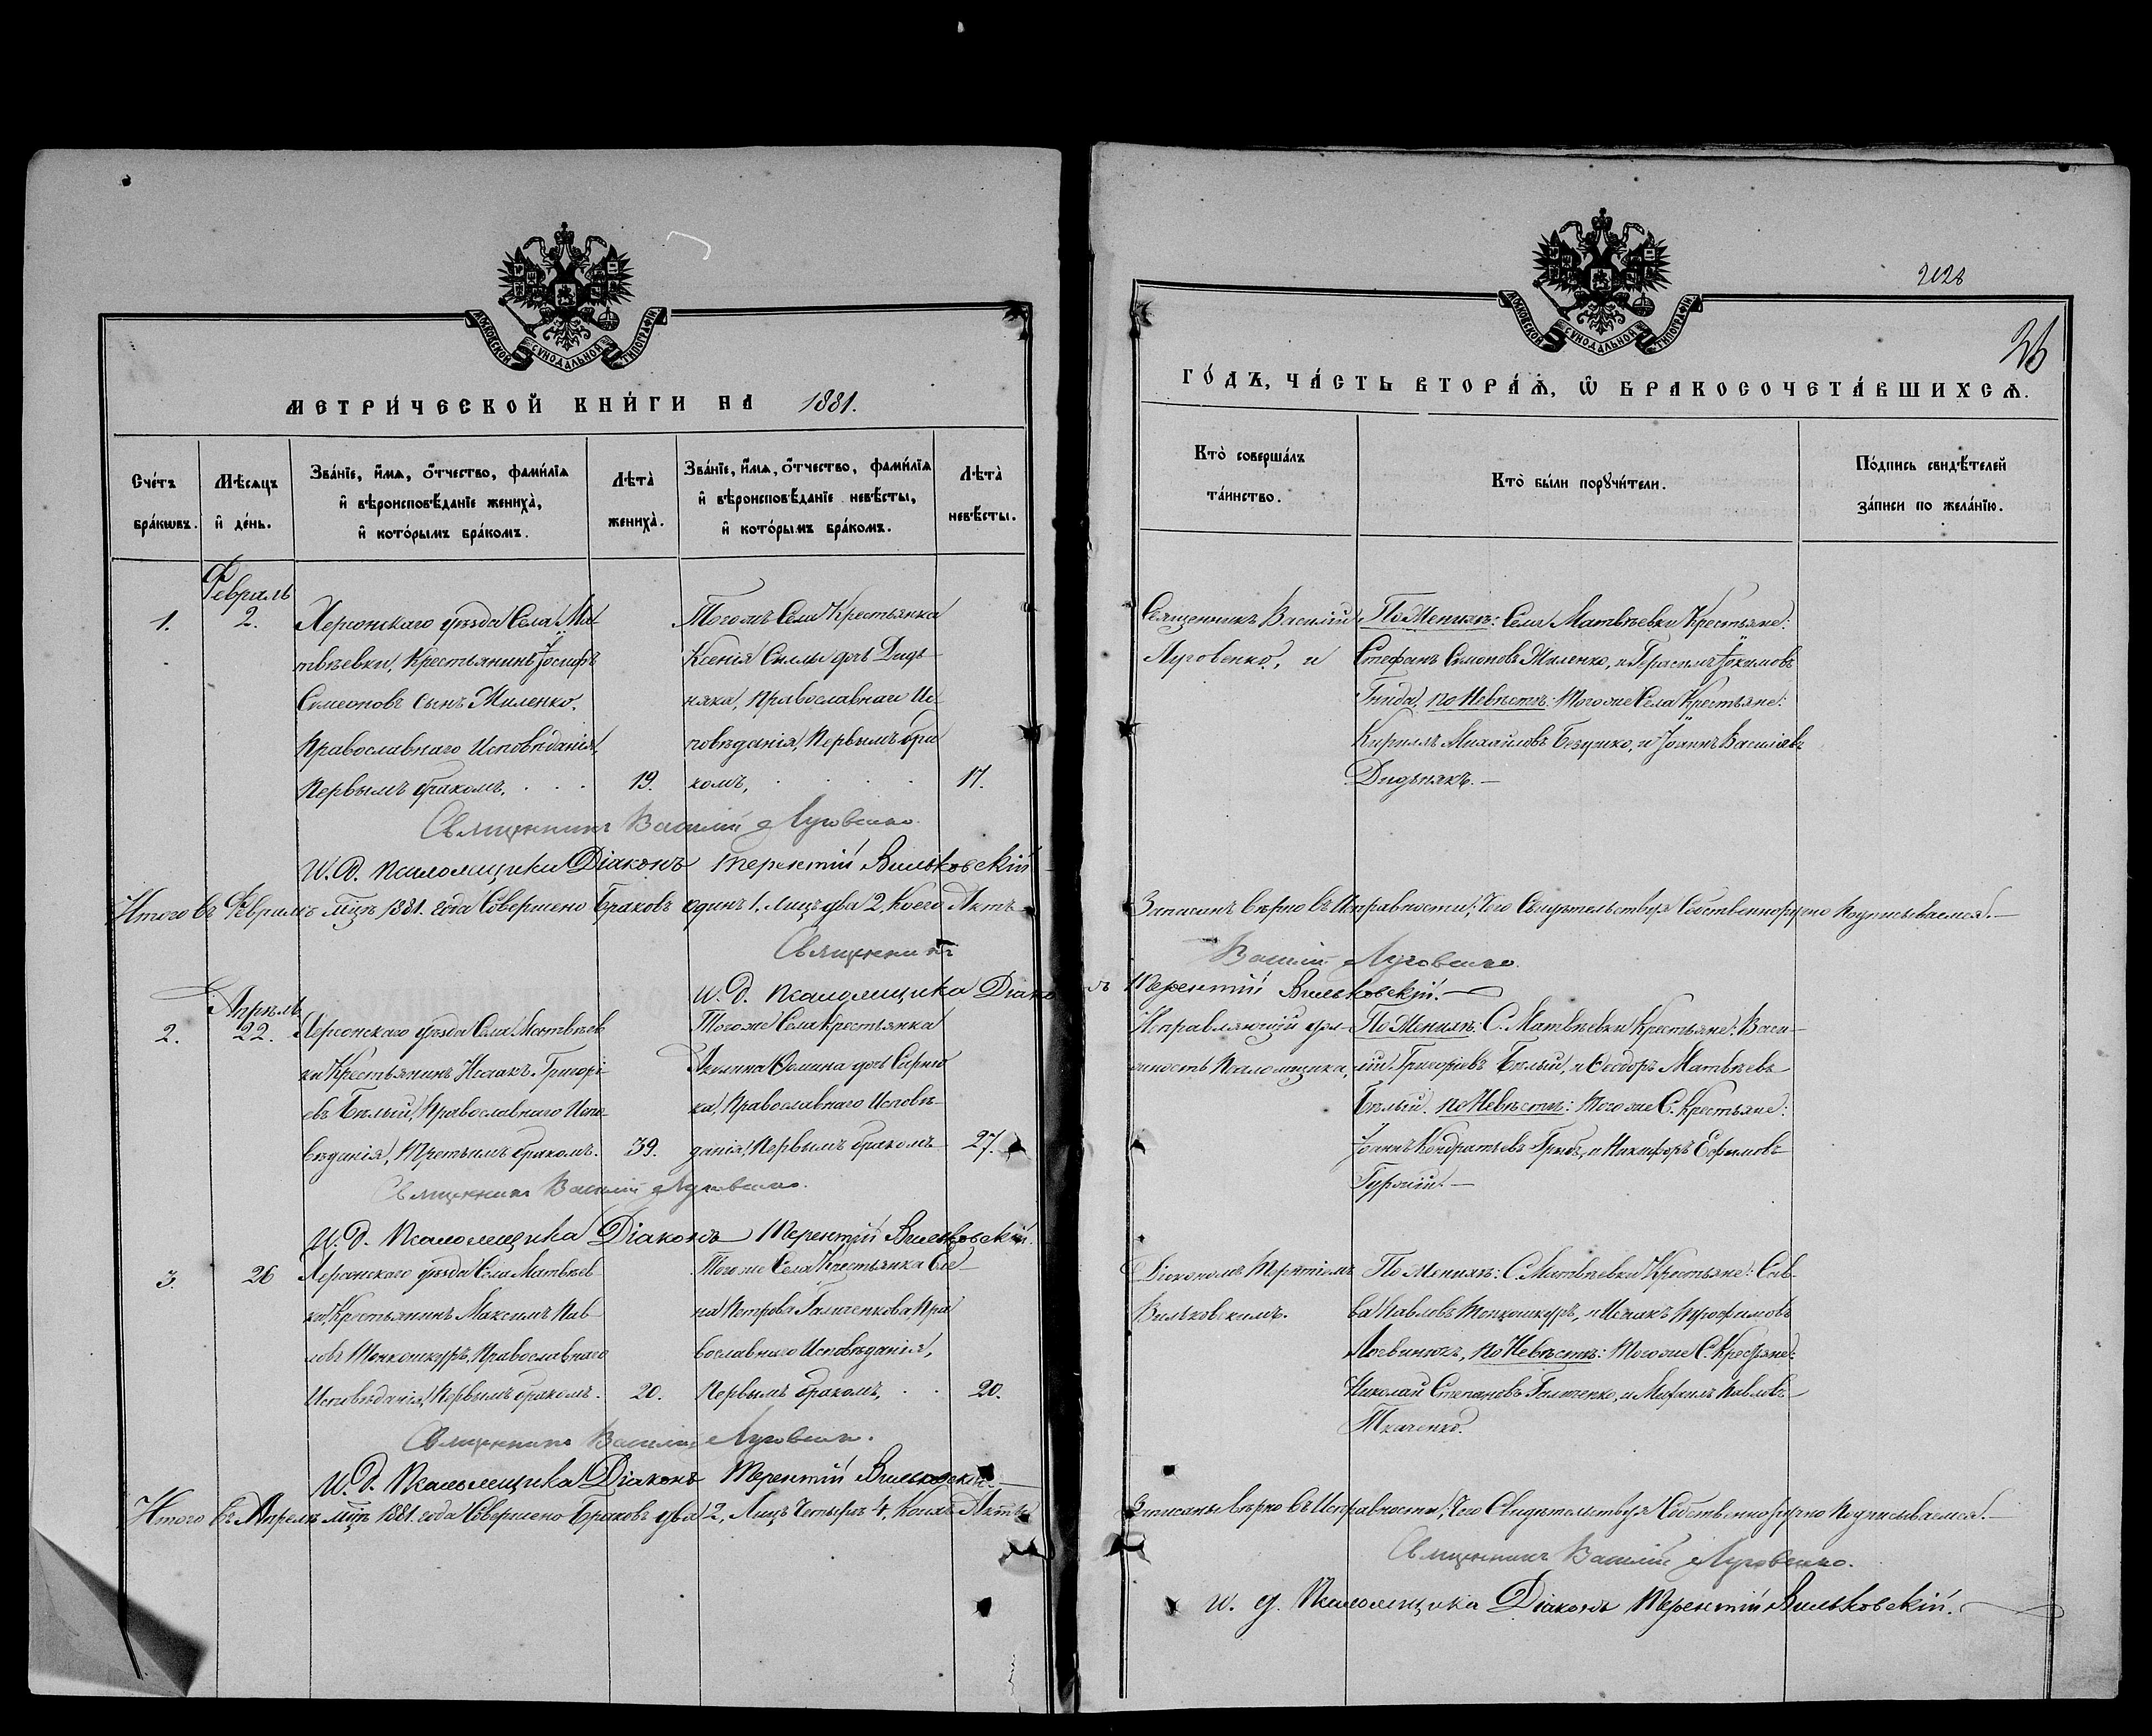 МОСКОВСКОЙ СѴНОДАЛЬНОЙ ТИПОГРАФІИ
МЕТРИ́ЧЕСКОЙ КНИ́ГИ НА 1881.
Сче́тъ бра́кωвъ.
Мѣ́сяцъ и҆ де́нь.
Зва́нїе, и҆́мѧ, ѻ҆́тчество, фами́лїѧ
и҆ вѣроисповѣ́данїе жениха̀,
и҆ кото́рымъ бра́комъ.
Лѣта̀ жениха̀.
Зва́нїе, и҆́мѧ, ѻ҆́тчество, фами́лїѧ
и҆ вѣроисповѣ́данїе невѣ́сты,
и҆ кото́рымъ бра́комъ.
Лѣта̀ невѣ́сты.
Февраль
1. 2.
Херсонскаго уѣзда Села Ма
твѣевки, Крестьянинъ Іосифъ
Симеоновъ Сынъ Миленко,
Православнаго Исповѣданія,
Первымъ бракомъ, . . . 19.
Тогожъ Села Крестьянка
Ксенія Силы дочь Дидъ
няка, Православнаго Ис
повѣданія, Первымъ бра
комъ, . . . . 17.
Священникъ Василій Луговенко.
И. д. Псаломщика Діаконъ Терентій Вильковскій
Итого въ Февралѣ мцѣ 1881. года Совершено Браковъ Одинъ 1, лицъ два 2, Коего Актъ
Священникъ
И. д. Псаломщика Діако
Апрѣль
2. 22.
Херсонскаго уѣзда Села Матвѣев
ки Крестьянинъ Исаакъ Григорі
евъ Бѣлый, Православнаго Испо
вѣданія, Третьимъ бракомъ. 39.
Тогоже Села Крестьянка
Акилина Ѳомина дочь
ка, Православнаго Исповѣ
данія, Первымъ бракомъ 27.
Священникъ Василій Луговенко.
И. д. Псаломщика Діаконъ Терентій Вильковскій.
3. 26
Херсонскаго уѣзда Села Матвѣев
ки, Крестьянинъ Максимъ Пав
ловъ Тонкошкуръ, Православнаго
Исповѣданія, Первымъ бракомъ. 20.
Тогоже Села Крестьянка Еле
на Петрова Галиченкова, Пра
вославнаго Исповѣданія,
Первымъ бракомъ, . . 20.
Священникъ Василій Луговенко.
И. д. Псаломщика Діаконъ Терентій Вильковскій.
Итого въ Апрелѣ мцѣ 1881. года Совершено Браковъ два 2, Лицъ Четыре 4, Коихъ Акты
2028
26
МОСКОВСКОЙ СѴНОДАЛЬНОЙ ТИПОГРАФІИ
ГО́ДЪ, ЧА́СТЬ ВТОРА́Ѧ, Ѡ БРАКОСОЧЕТА́ВШИХСѦ.
Кто̀ соверша́лъ
та́инство.
Кто̀ бы́ли порꙋчи́тели.
По́дпись свидѣ́телей
за́писи по жела́нїю.
Священникъ Василій
Луговенко, и
По Женихѣ: Села Матвѣевки Крестьяне:
Стефанъ Симоновъ Миленко, и Герасимъ Іокимовъ
Гнида, по Невѣстѣ: Тогоже Села Крестьяне:
Кириллъ Михайловъ и Іоаннъ Василіевъ
Диднякъ.
Записанъ вѣрно въ Исправности; Чего Свидѣтельствуя Собственноручно Подписываемся.
Василій Луговенко.
нъ Терентій Вильковскій.
Исправляющій дол
жность Псаломщика,
По Женихѣ: С. Матвѣевки Крестьяне: Васи
лій Григоріевъ Бѣлый, и Ѳеодоръ Матвѣевъ
Бѣлый. по Невѣстѣ: Тогоже С. Крестьяне:
Іоаннъ Кондратьевъ и Никифоръ Ефимовъ
Діакономъ Терентіемъ
Вильковскимъ.
По Женихѣ: С. Матвѣевки Крестьяне: Сав
ва Павловъ Тонкошкуръ, и Исаакъ Трофимовъ
по Невѣстѣ: Тогоже С. Крестьяне:
Николай Степановъ Галиченко, и Михаилъ Павловъ
Ткаченко.
Записаны вѣрно въ Исправности; Чего Свидѣтельствуя Собственноручно Подписываемся.
Священникъ Василій Луговенко.
И. д. Псаломщика Діаконъ Терентій Вильковскій.